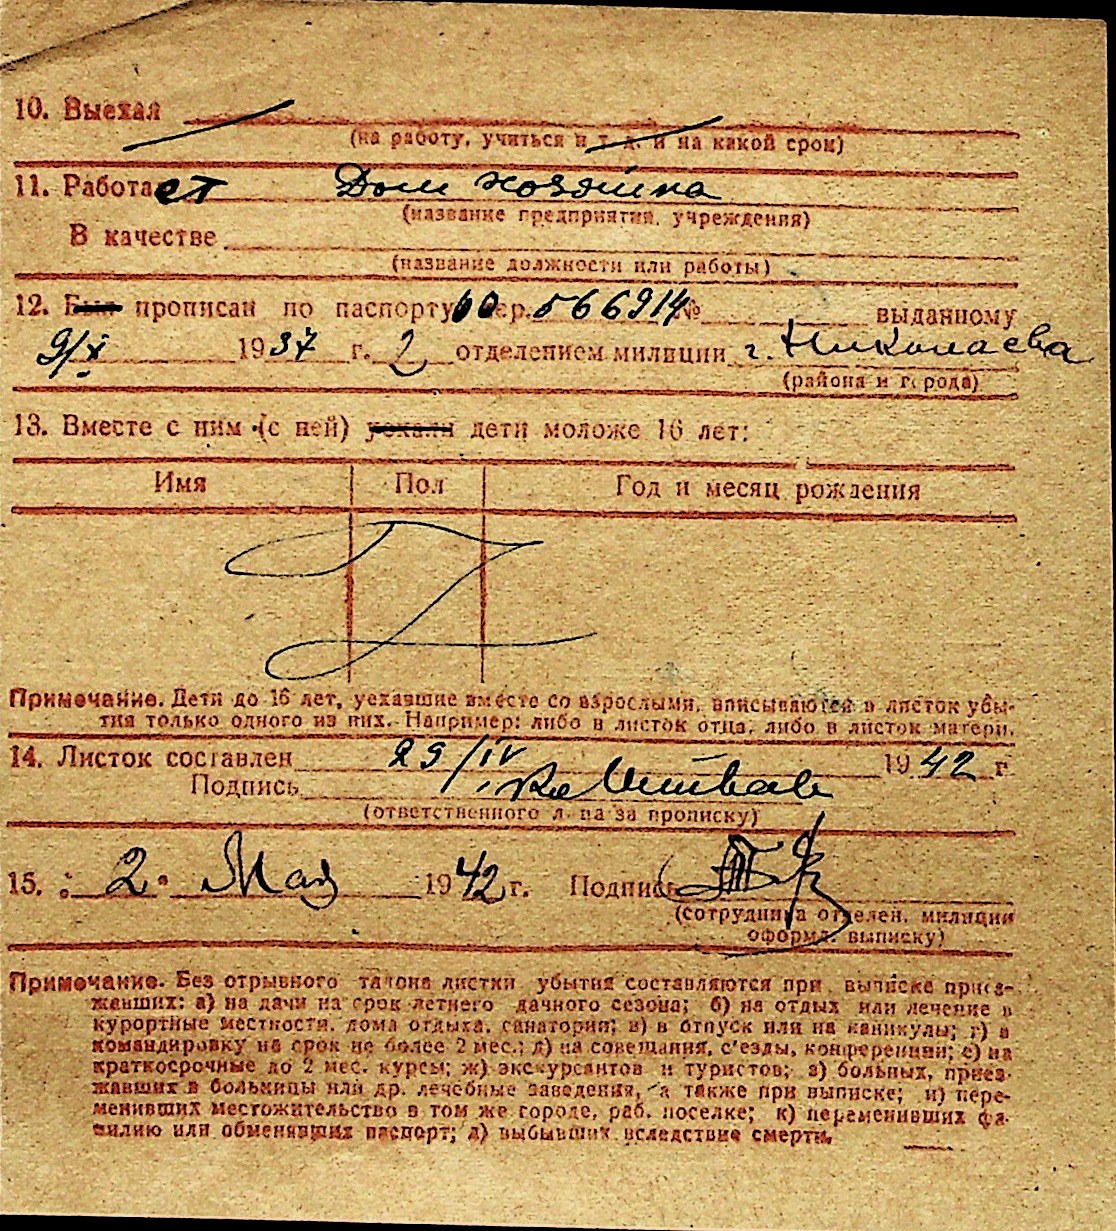 10. Выехал
(на работу, учиться и т. д. и на какой срок)
11. Работает Дом хозяйка
(название предприятия, учреждения)
В качестве
(название должности или работы)
12. Был прописан по паспорту сер. 566914 № выданному
9/X 1937 г. 2 отделением милиции г. Николаева
(района и города)
13. Вместе с ним (с ней) уехали дети моложе 16 лет:
Имя Пол Год и месяц рождения
Примечание. Дети до 16 лет, уехавшие вместе со взрослыми, вписываются в листок убы-
тия только одного из них. Например: либо в листок отца, либо в листок матери.
14. Листок составлен 29/IV 1942 г
Подпись
(ответственного л-ца за прописку)
15. „ 2 " Мая 1942 г. Подпись
(сотрудника отделен. милиции
оформл. выписку)
Примечание. Без отрывного талона листки убытия составляются при выписке приез-
жавших: а) на дачи на срок летнего дачного сезона; б) на отдых или лечение в
курортные местности, дома отдыха, санатории; в) в отпуск или на каникулы; г) в
командировку на срок не более 2 мес.; д) на совещания, с'езды, конференции; е) на
краткосрочные до 2 мес. курсы; ж) экскурсантов и туристов; з) больных, приез-
жавших в больницы или др. лечебные заведения, а также при выписке; и) пере-
менивших местожительство в том же городе, раб. поселке; к) переменивших фа-
милию или обменявших паспорт; л) выбывших вследствие смерти.